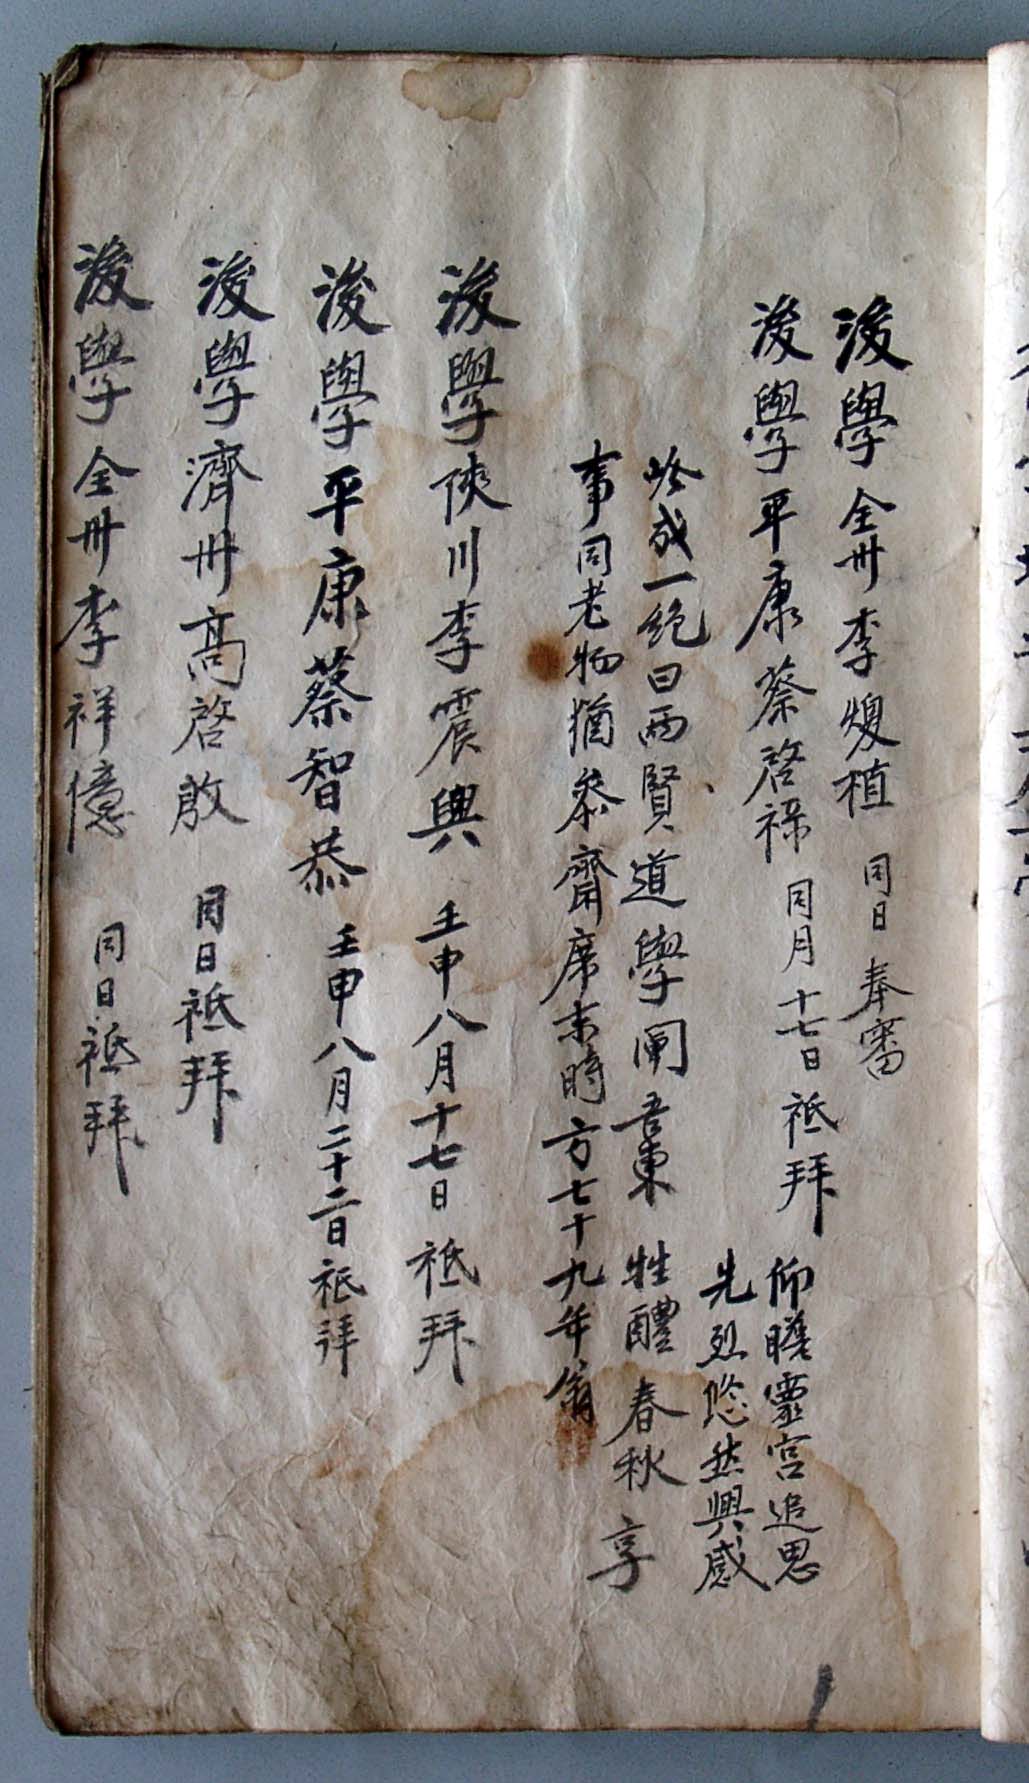 後學全州李煥植 同日 奉審
後學平康蔡啓祿 同月十七日 祗拜
仰瞻靈宮追思
先烈悠然興感
吟成一絶曰两賢道學闡吾東 牲醴春秋享
事同老物猶參齋席末時方七十九年翁
後學陜川李震興 壬申八月十七日 祗拜
後學平康蔡智恭 壬申八月二十二日 祗拜
後學濟州高啓敢 同日祗拜
後學全州李祥億 同日祗拜